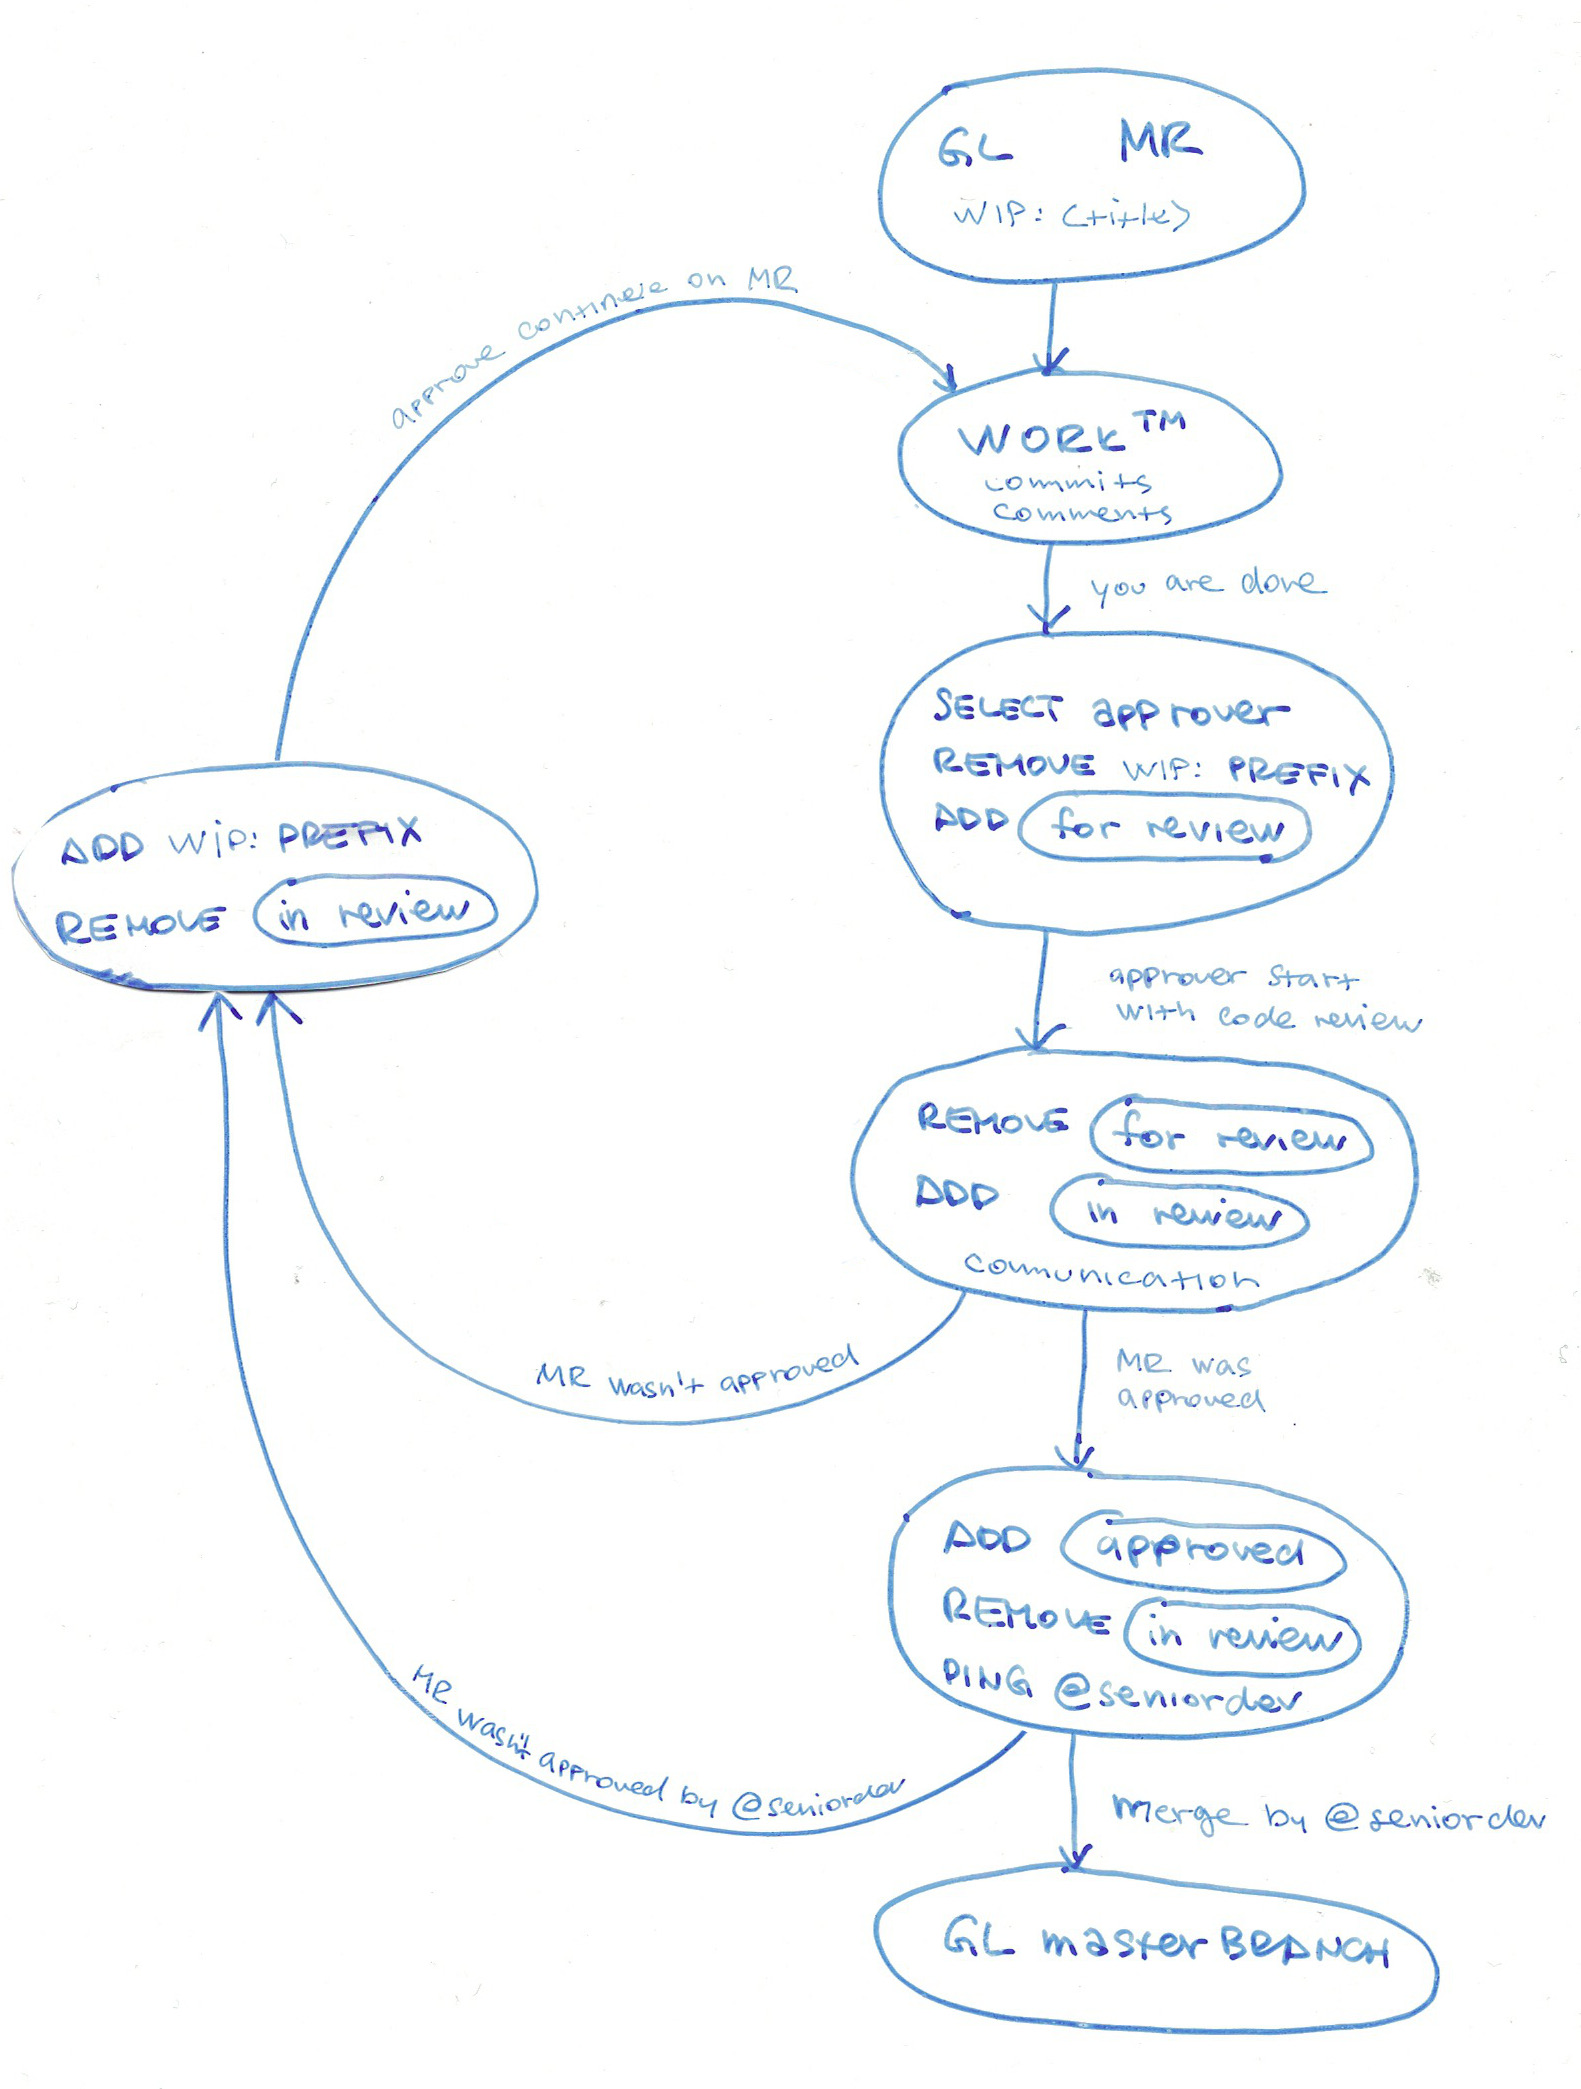 GL MR
WIP: <title>
approve continue on MR
WORK™
commits
comments
you are done
SELECT approver
REMOVE WIP: PREFIX
ADD for review
ADD WIP: PREFIX
REMOVE in review
approver start
with code review
REMOVE for review
ADD in review
communication
MR wasn't approved
MR was
approved
ADD approved
REMOVE in review
PING @seniordev
MR wasn't approved by @seniordev
Merge by @seniordev
GL master BRANCH